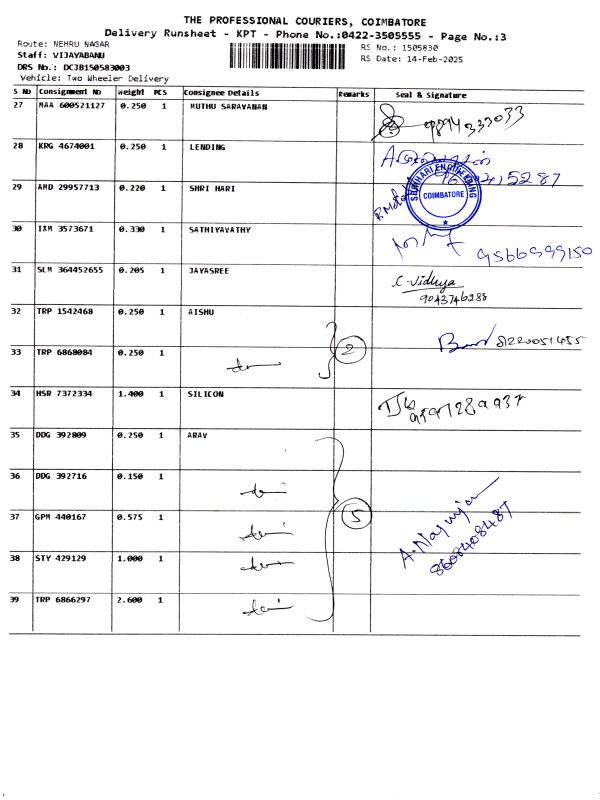 THE PROFESSIONAL COURIERS, COIMBATORE
Delivery Runsheet - KPT - Phone No.:0422-3505555 - Page No.:3
Route: NEHRU NAGAR
Staff: VIJAYABANU
DRS No.: DCJB150583003
Vehicle: Two Wheeler Delivery
RS No.: 1505830
RS Date: 14-Feb-2025
S NO Consignment No Weight PCS Consignee Details Remarks Seal & Signature
27 MAA 600521127 0.250 1 MUTHU SARAVANAN 9894333033
28 KRG 4674001 0.250 1 LENDING
29 AMD 29957713 0.220 1 SHRI HARI
SHRI HARI ENGINEERING
COIMBATORE
30 IXM 3573671 0.330 1 SATHIYAVATHY 9566999150
31 SLM 364452655 0.205 1 JAYASREE C. Vidhya
9043746288
32 TRP 1542468 0.250 1 AISHU
33 TRP 6868084 0.250 1 2
34 HSR 7372334 1.400 1 SILICON
35 DDG 392809 0.250 1 ARAV
36 DDG 392716 0.150 1
37 GPM 440167 0.575 1 5
38 STY 429129 1.000 1
39 TRP 6866297 2.600 1
8608408487